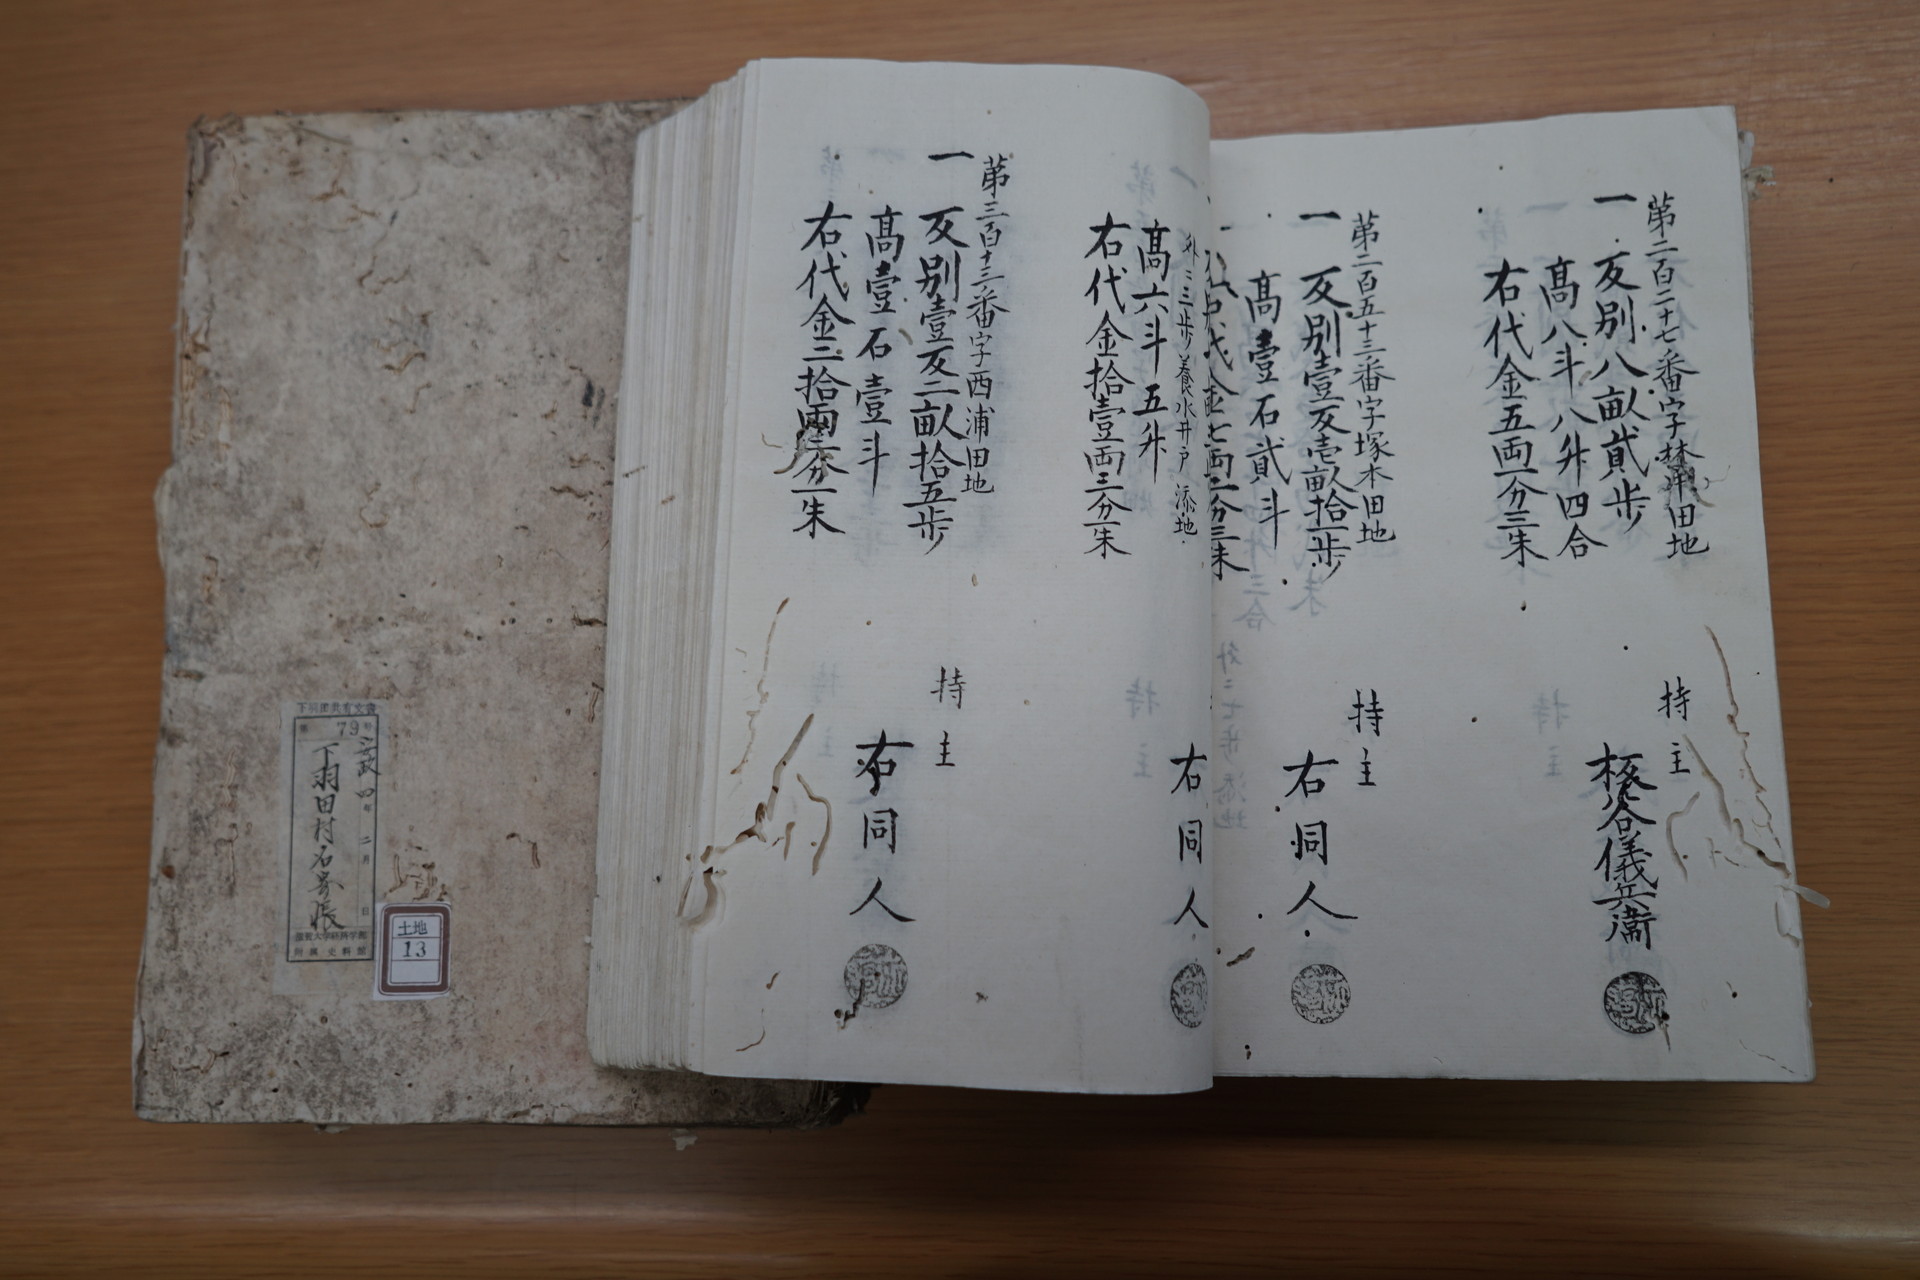 第二百二十七番字林田地
一 反別八畝貳歩
高八斗八升四合
右代金五両一分三朱
持主
儀兵衛
第二百五十三番字塚本田地
一 反別壹反壱畝拾一歩
高壹石貳斗
持主
右同人
外ニ三歩養水井戸添地
高六斗五升
右代金拾壹両三分一朱
右同人
第三百十三番字西浦田地
一 反別壹反二畝拾五歩
高壹石壹斗
右代金二拾両二分一朱
持主
右同人
下羽田共有文書
第 79 号
安政四年二月 日
下羽田村名寄帳
滋賀大学経済学部
附属史料館
土地
13